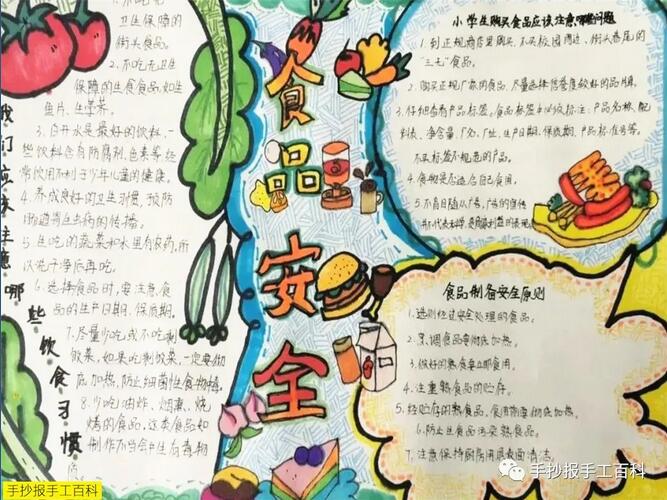 食品安全
我们应该注意哪些饮食习惯
不吃无
卫生保障的
街头食品。
2、不吃无卫生
保障的生食食品,如生
鱼片、生
3、白开水是最好的饮料,一
些饮料含有防腐剂、色素等,经
常饮用不利于少年儿童的健康。
4、养成良好的卫生习惯,预防
肠道寄生虫病的传播。
5、生吃的蔬菜和水里有农药,所
以洗干净后再吃。
6、选择食品时,要注意食
品的生产日期、保质期。
7、尽量少吃或不吃剩
饭菜,如果吃剩饭菜,一定要彻
底加热,防止细菌性食物
8、少吃油炸、烟熏、烧
烤的食品,这类食品如
制作不当会产生有毒物
小学生购买食品应该注意哪些问题
1、到正规商店里购买,不买校园周边、街头巷尾的
“三无”食品。
2、购买正规厂家的食品,尽量选择信誉度较好的品牌。
3、仔细查看产品标签。食品标签中必须标注:产品名称、配
料表、净含量、厂名、厂址、生产日期、保质期、产品标准号等。
不买标签不规范的产品。
4、食物是否适合自己食用。
5、不盲目随从广告,广告的宣传
并不代表科学,是商家利益的表现。
食品制备安全原则
1、选择经过安全处理的食品。
2、烹调食品要彻底加热。
3、做好的熟食要立即食用。
4、注重熟食品的贮存。
5、经贮存的熟食品,食用前要彻底加热。
6、防止生食品污染熟食品。
7、注意保持厨房用具表面清洁。
手抄报手工百科
手抄报手工百科